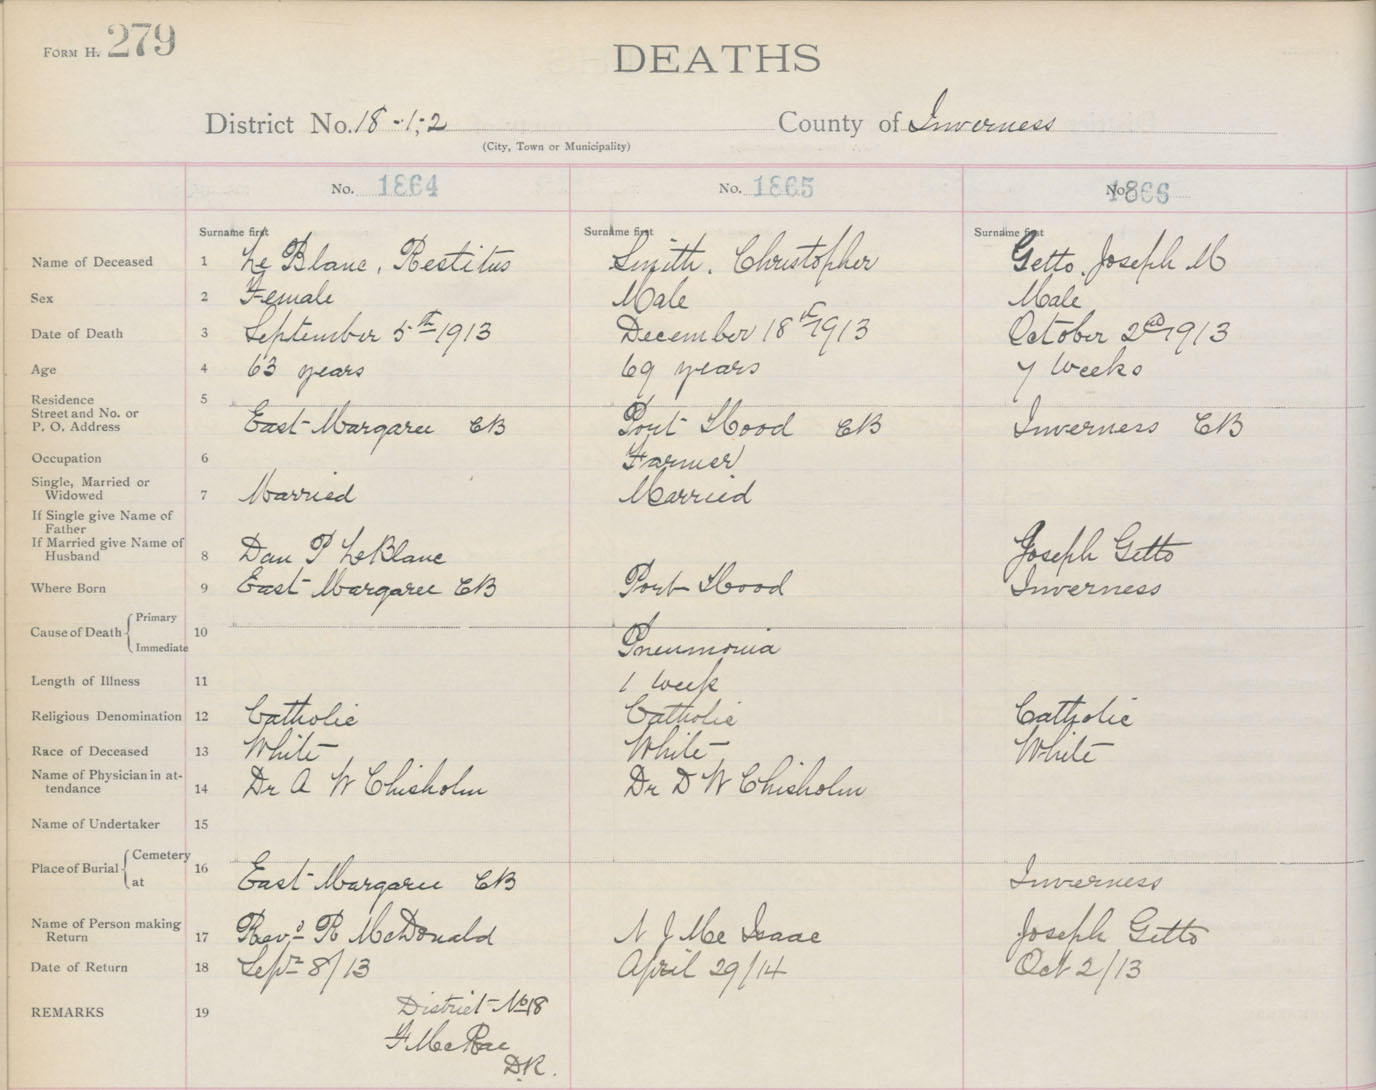 FORM H. 279
DEATHS
District No. 18-1,-2 County of Inverness
(City, Town or Municipality)
No. 1864 No. 1865 No. 1866
Surname first Surname first Surname first
Name of Deceased 1 Le Blanc, Restitus Smith, Christopher Getto, Joseph M
Sex 2 Female Male Male
Date of Death 3 September 5th 1913 December 18th 1913 October 2nd 1913
Age 4 63 years 69 years 7 Weeks
Residence 5
Street and No. or
P. O. Address East Margaree CB Port Hood CB Inverness CB
Occupation 6 Farmer
Single, Married or
Widowed 7 Married Married
If Single give Name of
Father
If Married give Name of
Husband 8 Dan P LeBlanc Joseph Getto
Where Born 9 East Margaree CB Port Hood Inverness
Cause of Death { Primary 10
Immediate Pneumonia
Length of Illness 11 1 week
Religious Denomination 12 Catholic Catholic Catholic
Race of Deceased 13 White White White
Name of Physician in at-
tendance 14 Dr A W Chisholm Dr D W Chisholm
Name of Undertaker 15
Place of Burial { Cemetery 16
at East Margaree CB Inverness
Name of Person making
Return 17 Revd R McDonald N J Mc Isaac Joseph Getto
Date of Return 18 Sept 8/13 April 29/14 Oct 2/13
REMARKS 19 District No 18
F McRae
D.R.